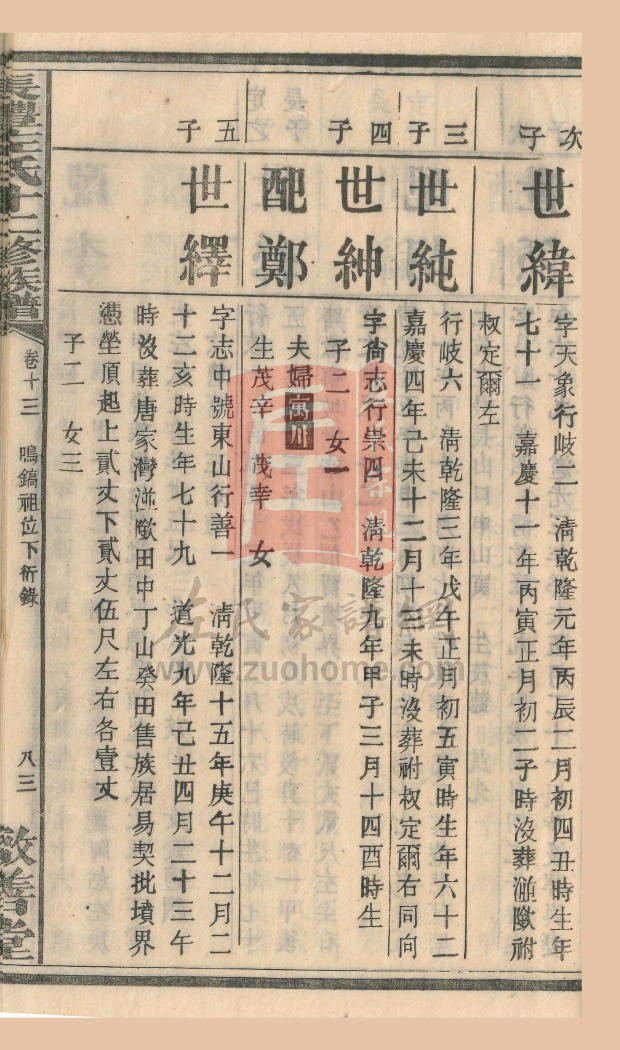 次子
世緯
字天象行歧二 清乾隆元年丙辰二月初四丑時生年
七十一 嘉慶十一年丙寅正月初二子時沒葬 祔
叔定爾左
三子
世純
行歧六 清乾隆三年戊午正月初五寅時生年六十二
嘉慶四年己未十二月十三未時沒葬祔叔定爾右同向
四子
世紳
字尙志行崇四 清乾隆九年甲子三月十四酉時生
子二 女一
配鄭
夫婦寓川
生茂辛 茂幸 女
五子
世繹
字志中號東山行善一 清乾隆十五年庚午十二月二
十二亥時生年七十九 道光九年己丑四月二十三午
時沒葬唐家灣 田中丁山癸田售族居易契批墳界
憑塋頂起上貳丈下貳丈伍尺左右各壹丈
子二 女三
長灃左氏十二修族譜
卷十三 鳴鎬祖位下衍錄
八三
敦善堂
左氏家譜網
www.zuohome.com